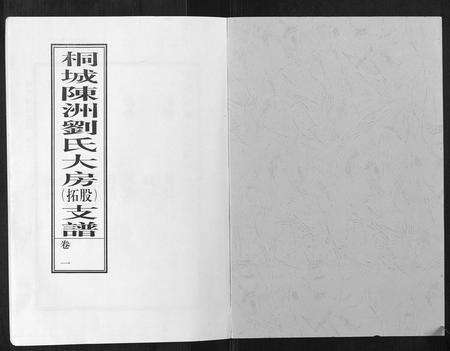 桐城陳洲劉氏大房（拓股）支譜
卷一